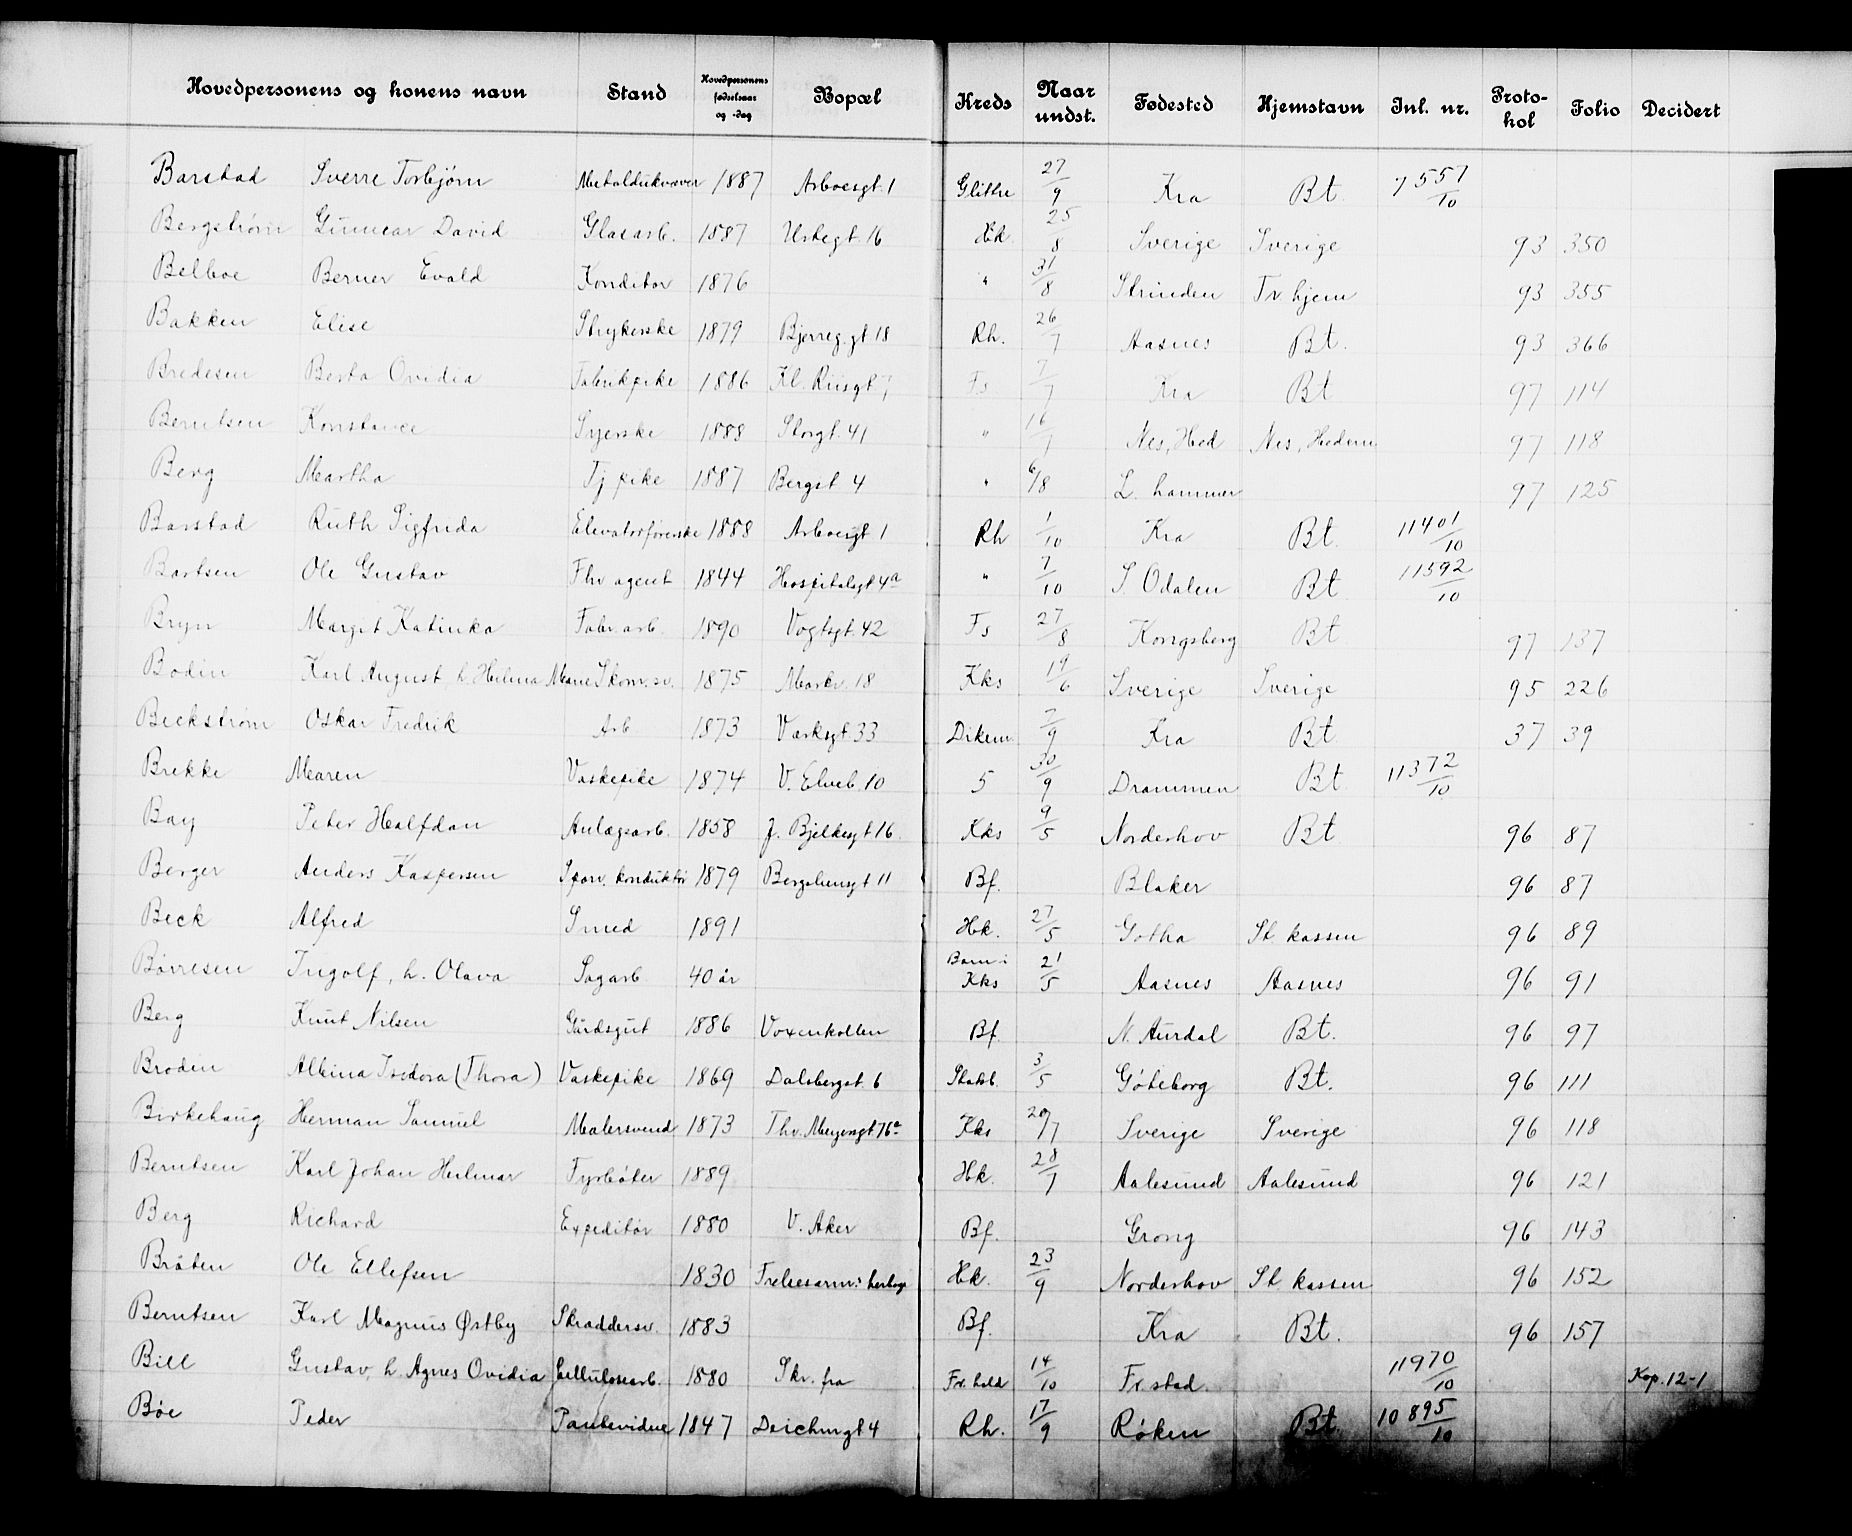 Hovedpersonens og konens navn Stand Hovedpersonens fødselsaar og -dag Bopæl Kreds Naar undst. Fødested Hjemstavn Inl. nr. Protokol Folio Decidert
Barstad Sverre Torbjørn Metaldukvæver 1887 Arboesgt. 1 Glitre 27/9 Kra Bt. 7557/10
Bergstrøm Gunnar David Glasarb. 1887 Urtegt. 16 Hk. 25/8 Sverige Sverige 93 350
Belboe Berner Evald Konditor 1876 " 31/8 Strinden Tr.hjem 93 355
Bakken Elise Strykerske 1879 Bjerreg.gt 18 Rh. 26/7 Aasnes Bt. 93 366
Bredesen Berta Ovidia Fabrikpike 1886 Kl. Riisgt 7 Fs 7/7 Kra Bt 97 114
Berntsen Konstance Syerske 1888 Storgt. 41 " 16/7 Nes, Hed Nes, Hedem 97 118
Berg Martha Tj pike 1887 Bergst 4 " 6/8 L. hammer 97 125
Barstad Ruth Sigfrida Elevatorførerske 1888 Arboesgt 1 Rh 1/10 Kra Bt. 11401/10
Bartsen Ole Gustav Fhv agent 1844 Hospitalsgt 4a " 7/10 S Odalen Bt. 11592/10
Bryn Margit Katinka Fabr.arb. 1890 Vogtsgt. 42 Fs 27/8 Kongsberg Bt 97 137
Bodin Karl August h. Helina Marie Skom.sv. 1875 Markv. 18 Kks 19/6 Sverige Sverige 95 226
Beckstrøm Oskar Fredrik Arb 1873 Værksgt. 33 Dikem 2/9 Kra Bt. 37 39
Brekke Maren Vaskepike 1874 V. Elveb. 10 5 30/9 Drammen Bt 11372/10
Bay Peter Halfdan Anlægsarb. 1858 J. Bjelkesgt 16. Kks 9/5 Norderhov Bt. 96 87
Berger Anders Kaspersen Sporv. konduktør 1879 Bergsliensgt 11 Bf. Blaker 96 87
Beck Alfred Smed 1891 Hk. 27/5 Gotha St kassen 96 89
Børresen Ingolf, h. Olava Sagarb. 40 år Barn i Kks 21/5 Aasnes Aasnes 96 91
Berg Knut Nilsen Gårdsgut 1886 Voxenkollen Bf. N. Aurdal Bt. 96 97
Brodin Albina Isidora (Thora) Vaskepike 1869 Dalsbergst. 6 Stabb. 3/5 Göteborg Bt. 96 111
Birkehaug Herman Samuel Malersvend 1873 Thv. Meyersgt 76a Kks 29/7 Sverige Sverige 96 118
Berntsen Karl Johan Hilmar Fyrbøter 1889 Hk. 28/7 Aalesund Aalesund 96 121
Berg Richard Expeditør 1880 V. Aker Bf. Grong 96 143
Bråten Ole Ellefsen 1830 Frelsesarm: herberge Hk. 23/9 Norderhov St kassen 96 152
Berntsen Karl Magnus Østby Skræddersv. 1883 Bf. Kra Bt. 96 157
Bill Gustav, h. Agnes Ovidia Cellulosearb. 1880 Skr. fra Fr. hald 14/10 Fr.stad. 11970/10 Kop. 12-1
Bøe Peder 1847 Deichmgt 4 Rh. 17/9 Røken Bt. 10895/10